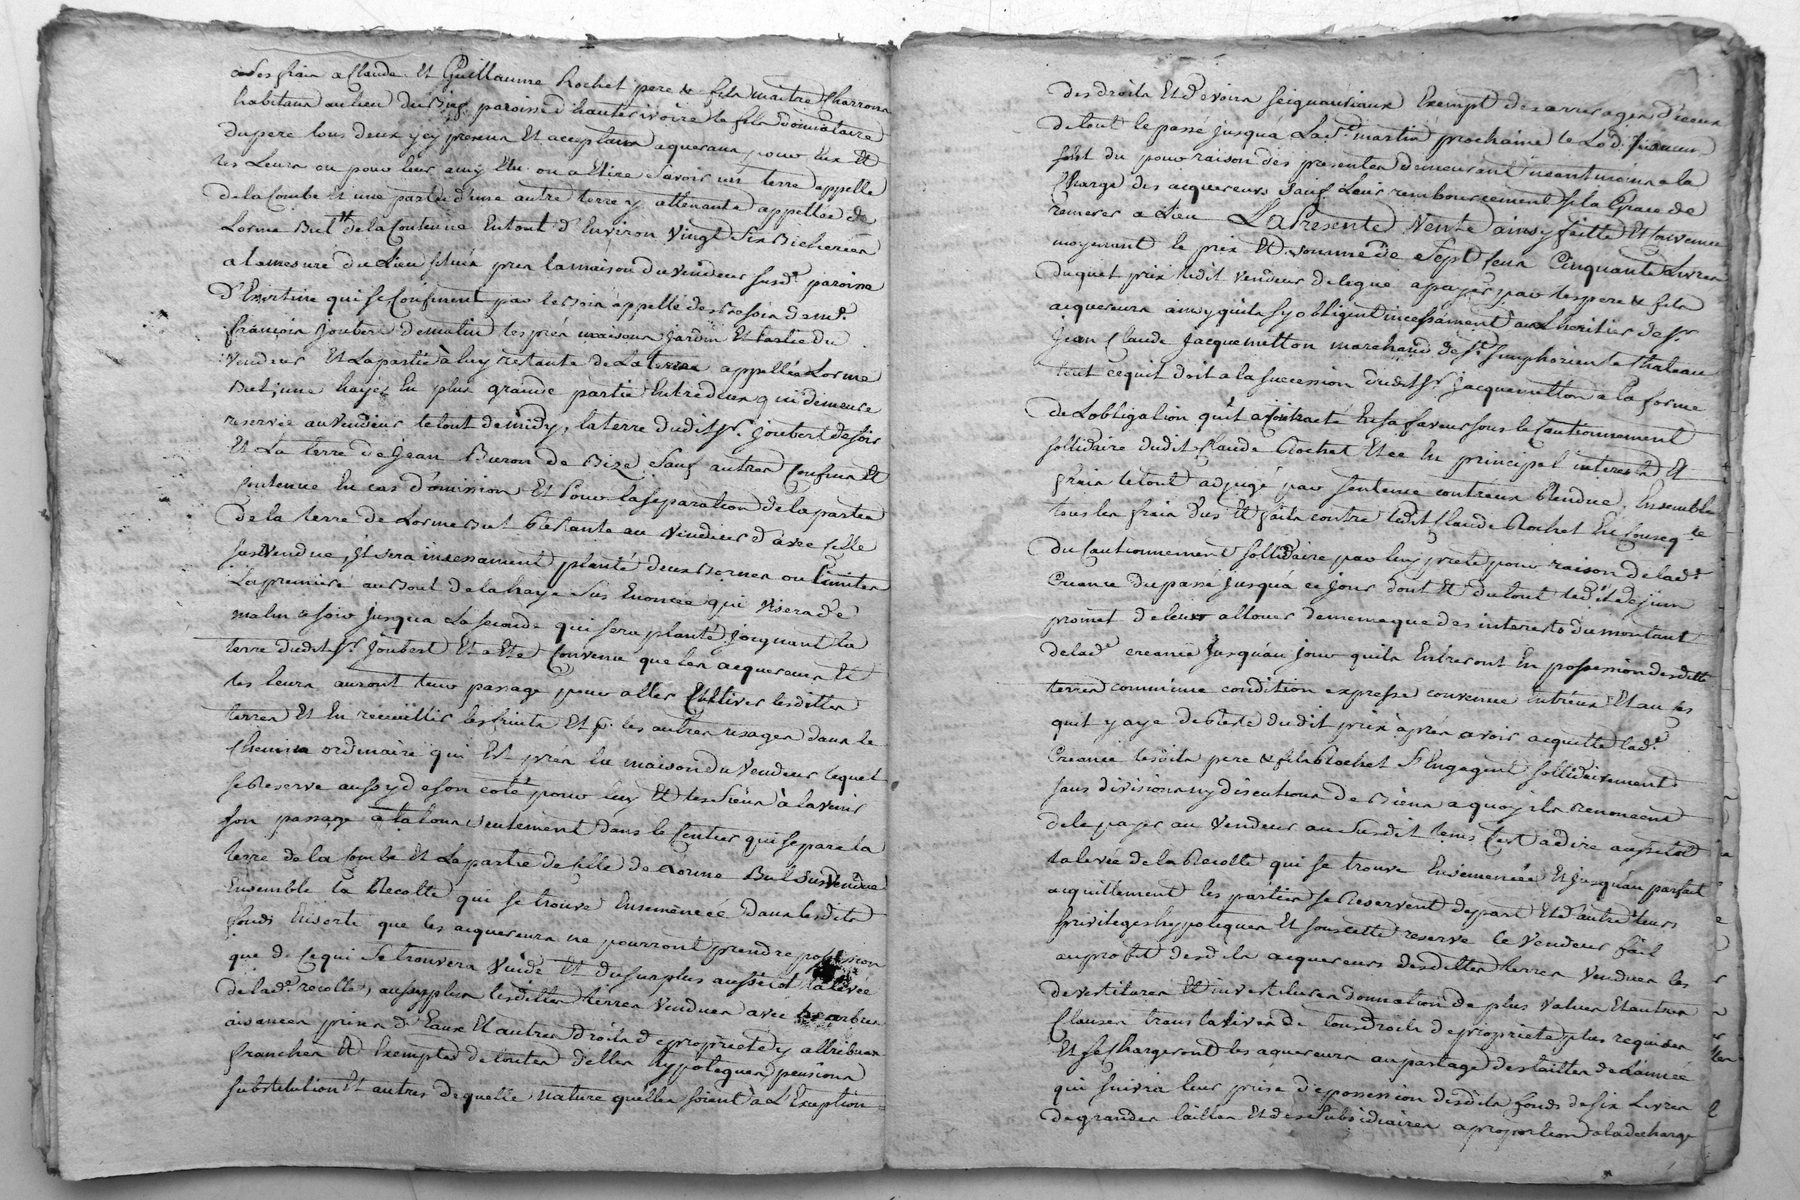 frais a Claude Et Guillaume Rochet pere & fils maitre Charrons
habitans au lieu du paroisse d'hauterivoire le fils donnataire
du pere tous deux y cy presens Et acceptans aquereurs pour Eux Et
les Leurs ou pour leur amy Elu ou a Elire Savoir une terre appellé
de la Combe et une partie d'une autre terre y attenante appellée de
Lorme But de la Contenüe En tout d'Environ Vingt Six Bicherées
a la mesure du Lieu situés pres la maison du vendeur susd. paroisse
qui se Confinent par le Bois appellé des Bessois de mr.
françois Joubert de matin les prés maisons Jardin Et Partie du
Vendeur Et La partie à luy restante de La terre appellée Lorme
But, une haye En plus grande partie Entredeux qui demeure
reservée au Vendeur le tout de midy, la terre dudit Sr. Joubert de soir
Et La terre de Jean Buron de Bize Sauf autres Confins Et
Contenue En cas d'omission Et Pour la Separation de la partie
de la terre de Lorme But Restante au Vendeur d'avec Celle
sus Vendue, Et sera incessament planté deux Bornes ou Limites
La premiere au Bout de la haye Sus Enoncée qui visera de
matin a soir Jusqua La seconde qui sera planté Joignant la
terre dudit Sr. Joubert Et a Eté Convenu que les acquereurs Et
les leurs auront leur passage pour aller Cultiver lesdittes
terres Et En recueillir les fruits Et pr. les autres usages dans le
Chemin ordinaire qui Est près la maison du Vendeur lequel
se Reserve aussy de son coté pour luy Et les siens à l'avenir
son passage a talons seulement dans le Sentier qui separe la
terre de la Combe Et La partie de Celle de Lorme But sus Vendue
Ensemble la Recolte qui se trouve Ensemencée dans lesdits
fonds Ensorte que les acquereurs ne pourront prendre possession
que de Ce qui Se trouvera Vuide Et du surplus aussitot la levée
de lade. recolte, aussy plus lesdittes terres Vendues avec arbres
aisances prises d'Eaux Et autres Droits de proprieté y attribués
franches Et Exemptes de toutes dettes hypoteques pensions
substitution Et autres de quelle nature qu'elles soient à L'Exeption
des droits Et devoirs seigneuriaux Exempt des arrerages d'iceux
de tout le passé Jusqu'a La St. martin prochaine le Lod
soit du pour raison des presentes demeurant neantmoins a la
Charge des acquereurs Sauf Leur remboursement si la Grace de
remerer a Lieu La Presente Vente ainsy faitte Et Convenue
moyenant le prix Et Somme de Sept Cens Cinquante Livres
duquel prix ledit vendeur delegue a payer par les pere & fils
acquereurs ainsy quils sy obligent incessament aux heritiers de Sr.
Jean Claude Jacquemetton marchand de St. Simphorien le Chateau
tout ce quil doit a la succession dudit Sr. Jacquemetton a la forme
de Lobligation quil a Contracté En sa faveur sous le Cautionnement
sollidaire dudit Claude Rochet Et ce En principal interests Et
frais le tout adjugé par sentence contreux Rendue, Ensemble
tous les frais dus Et faits contre ledit Claude Rochet En Conseqce.
du Cautionnement sollidaire par luy preté pour raison de lade.
Creance du passé Jusqu'a ce jour dont Et du tout ledit
promet de leur allouer de meme que des interests du montant
de lade. creance Jusqu'au jour quils Entreront En possession desdittes
terres comm'une condition expresse convenue Entreux Et au cas
quil y aye de Reste dudit prix après avoir acquitté lade.
Creance lesdits pere & fils Rochet S'Engagent sollidairement
sans division ny discutions de Biens a quoy ils renoncent
de le payer au Vendeur au susdit tems C'est a dire aussitot
la levée de la Recolte qui se trouve Ensemencée Et Jusqu'au parfait
acquittement les parties se Reservent de part Et d'autre leurs
privileges hypoteques Et sous cette reserve le Vendeur fait
au profit desdits acquereurs desdittes terres Vendues les
devestitures Et investitures donnation de plus values Et autres
Clauses translatives de tous droits de proprieté plus requises
Et se Chargeront les aquereurs au partage des tailles de l'année
qui suivra leur prise de possession desdits fonds de six Livres
de grandes tailles Et des Subsidiaires a proportion a la decharge